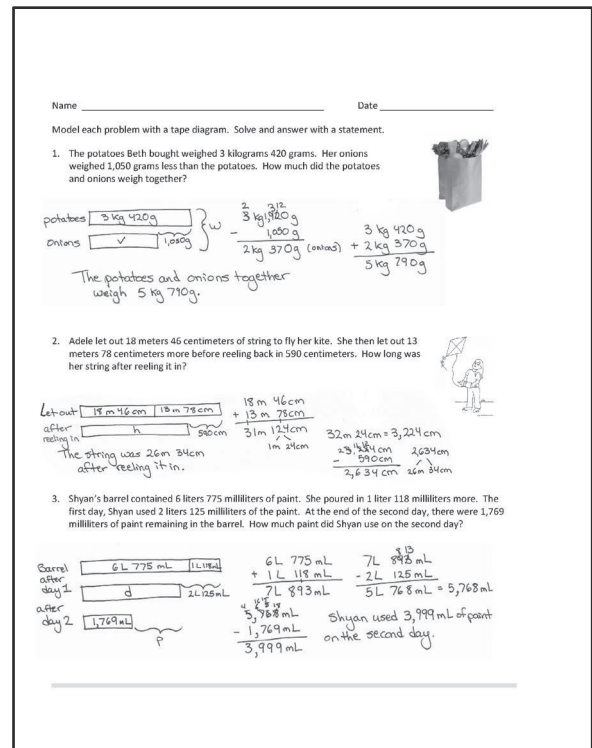 Name Date
Model each problem with a tape diagram. Solve and answer with a statement.
1. The potatoes Beth bought weighed 3 kilograms 420 grams. Her onions
weighed 1,050 grams less than the potatoes. How much did the potatoes
and onions weigh together?
potatoes 3 kg 420g
onions 1,050g
W
2 312
3 kg 1,420 g
- 1,050 g
2 kg 370g (onions)
3 kg 420 g
+ 2 kg 370 g
5 kg 790 g
The potatoes and onions together
weigh 5 kg 790g.
2. Adele let out 18 meters 46 centimeters of string to fly her kite. She then let out 13
meters 78 centimeters more before reeling back in 590 centimeters. How long was
her string after reeling it in?
Let out 18 m 46 cm 13 m 78 cm
after
reeling in h 590 cm
18 m 46 cm
+ 13 m 78 cm
31 m 124 cm
1m 24cm
32m 24cm = 3,224 cm
- 590cm
2,634 cm
2,634cm
26m 34cm
The string was 26m 34cm
after reeling it in.
3. Shyan's barrel contained 6 liters 775 milliliters of paint. She poured in 1 liter 118 milliliters more. The
first day, Shyan used 2 liters 125 milliliters of the paint. At the end of the second day, there were 1,769
milliliters of paint remaining in the barrel. How much paint did Shyan use on the second day?
Barrel 6L 775 mL 1L 118mL
after
day 1 d 2L 125mL
after
day 2 1,769mL
P
6L 775 mL
+ 1L 118 mL
7L 893mL
8 13
7L 893 mL
- 2L 125 mL
5L 768 mL = 5,768mL
5,768mL
- 1,769mL
3,999mL
Shyan used 3,999 mL of paint
on the second day.